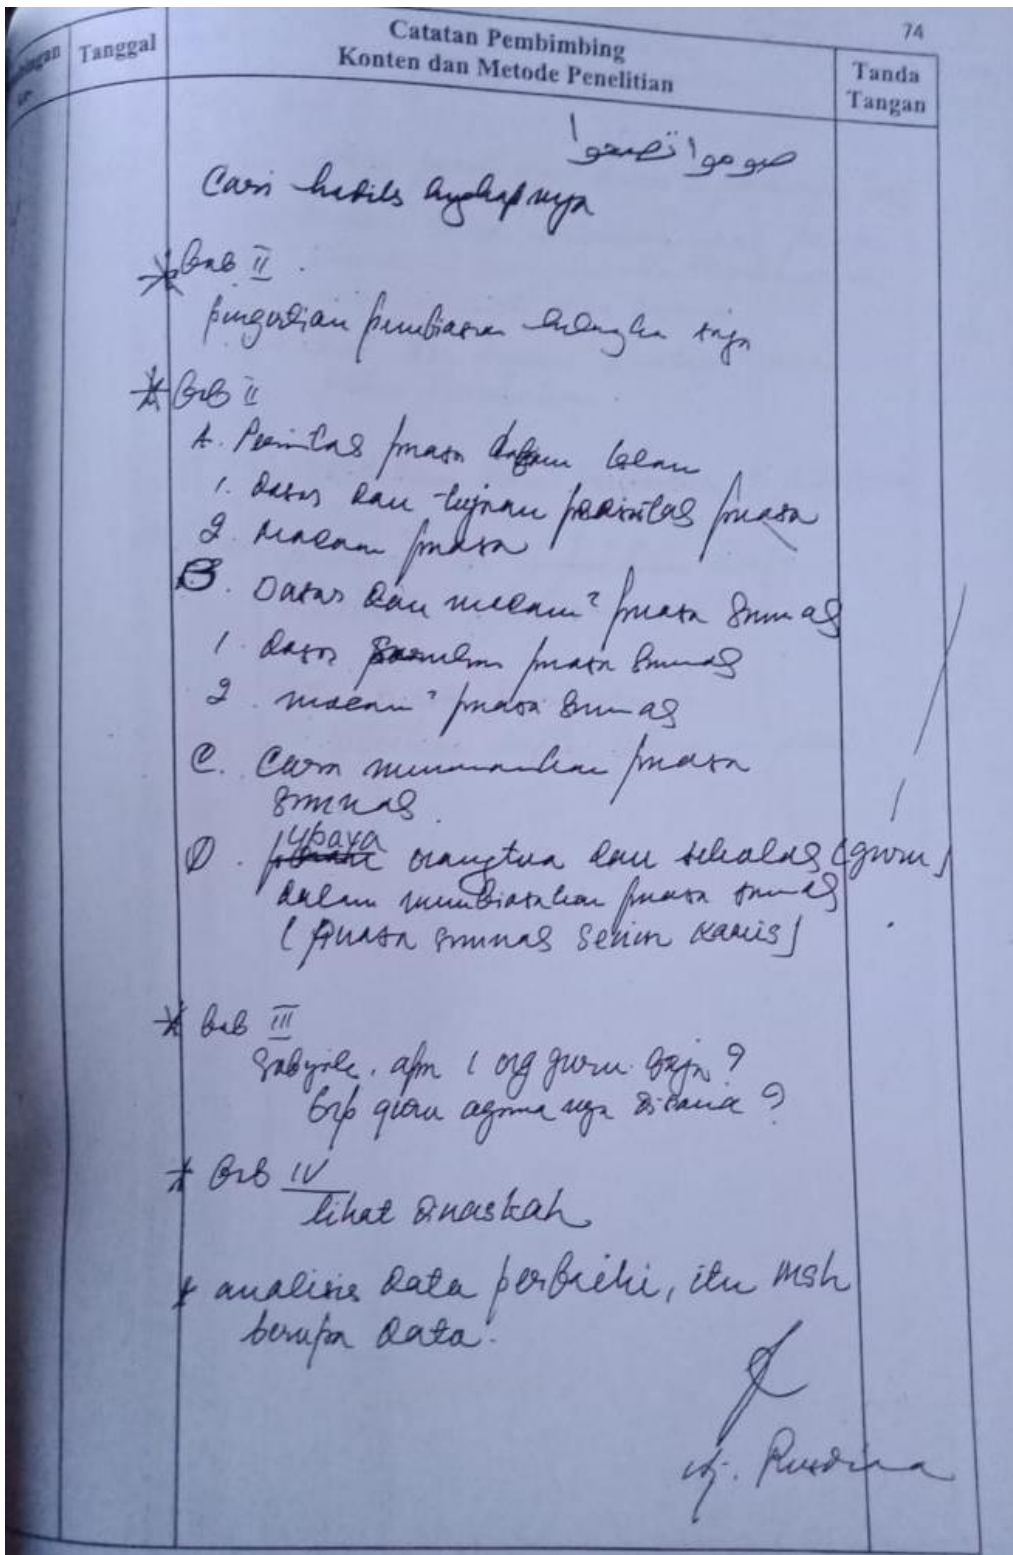 74
Bimbingan ke- Tanggal
Catatan Pembimbing
Konten dan Metode Penelitian
Tanda
Tangan
صوموا تصحوا
Cari hadits lengkapnya
* bab II.
pengertian pembiasaan hilangkan saja
* Bab II
A. Perintah puasa dalam Islam
1. dasar dan tujuan perintah puasa
2. macam puasa
B. Dasar dan macam² puasa Sunnah
1. dasar puasa Sunnah
2. macam² puasa Sunnah
C. Cara menanamkan puasa
Sunnah
D. upaya orangtua dan sekolah (guru)
dalam membiasakan puasa sunnah
(Puasa sunnah Senin Kamis)
* bab III
Subyek. apa 1 org guru saja?
brp guru agama nya disana?
* Bab IV
lihat dinaskah
* analisis data perbaiki, itu msh
berupa data.
Hj. Rusdina